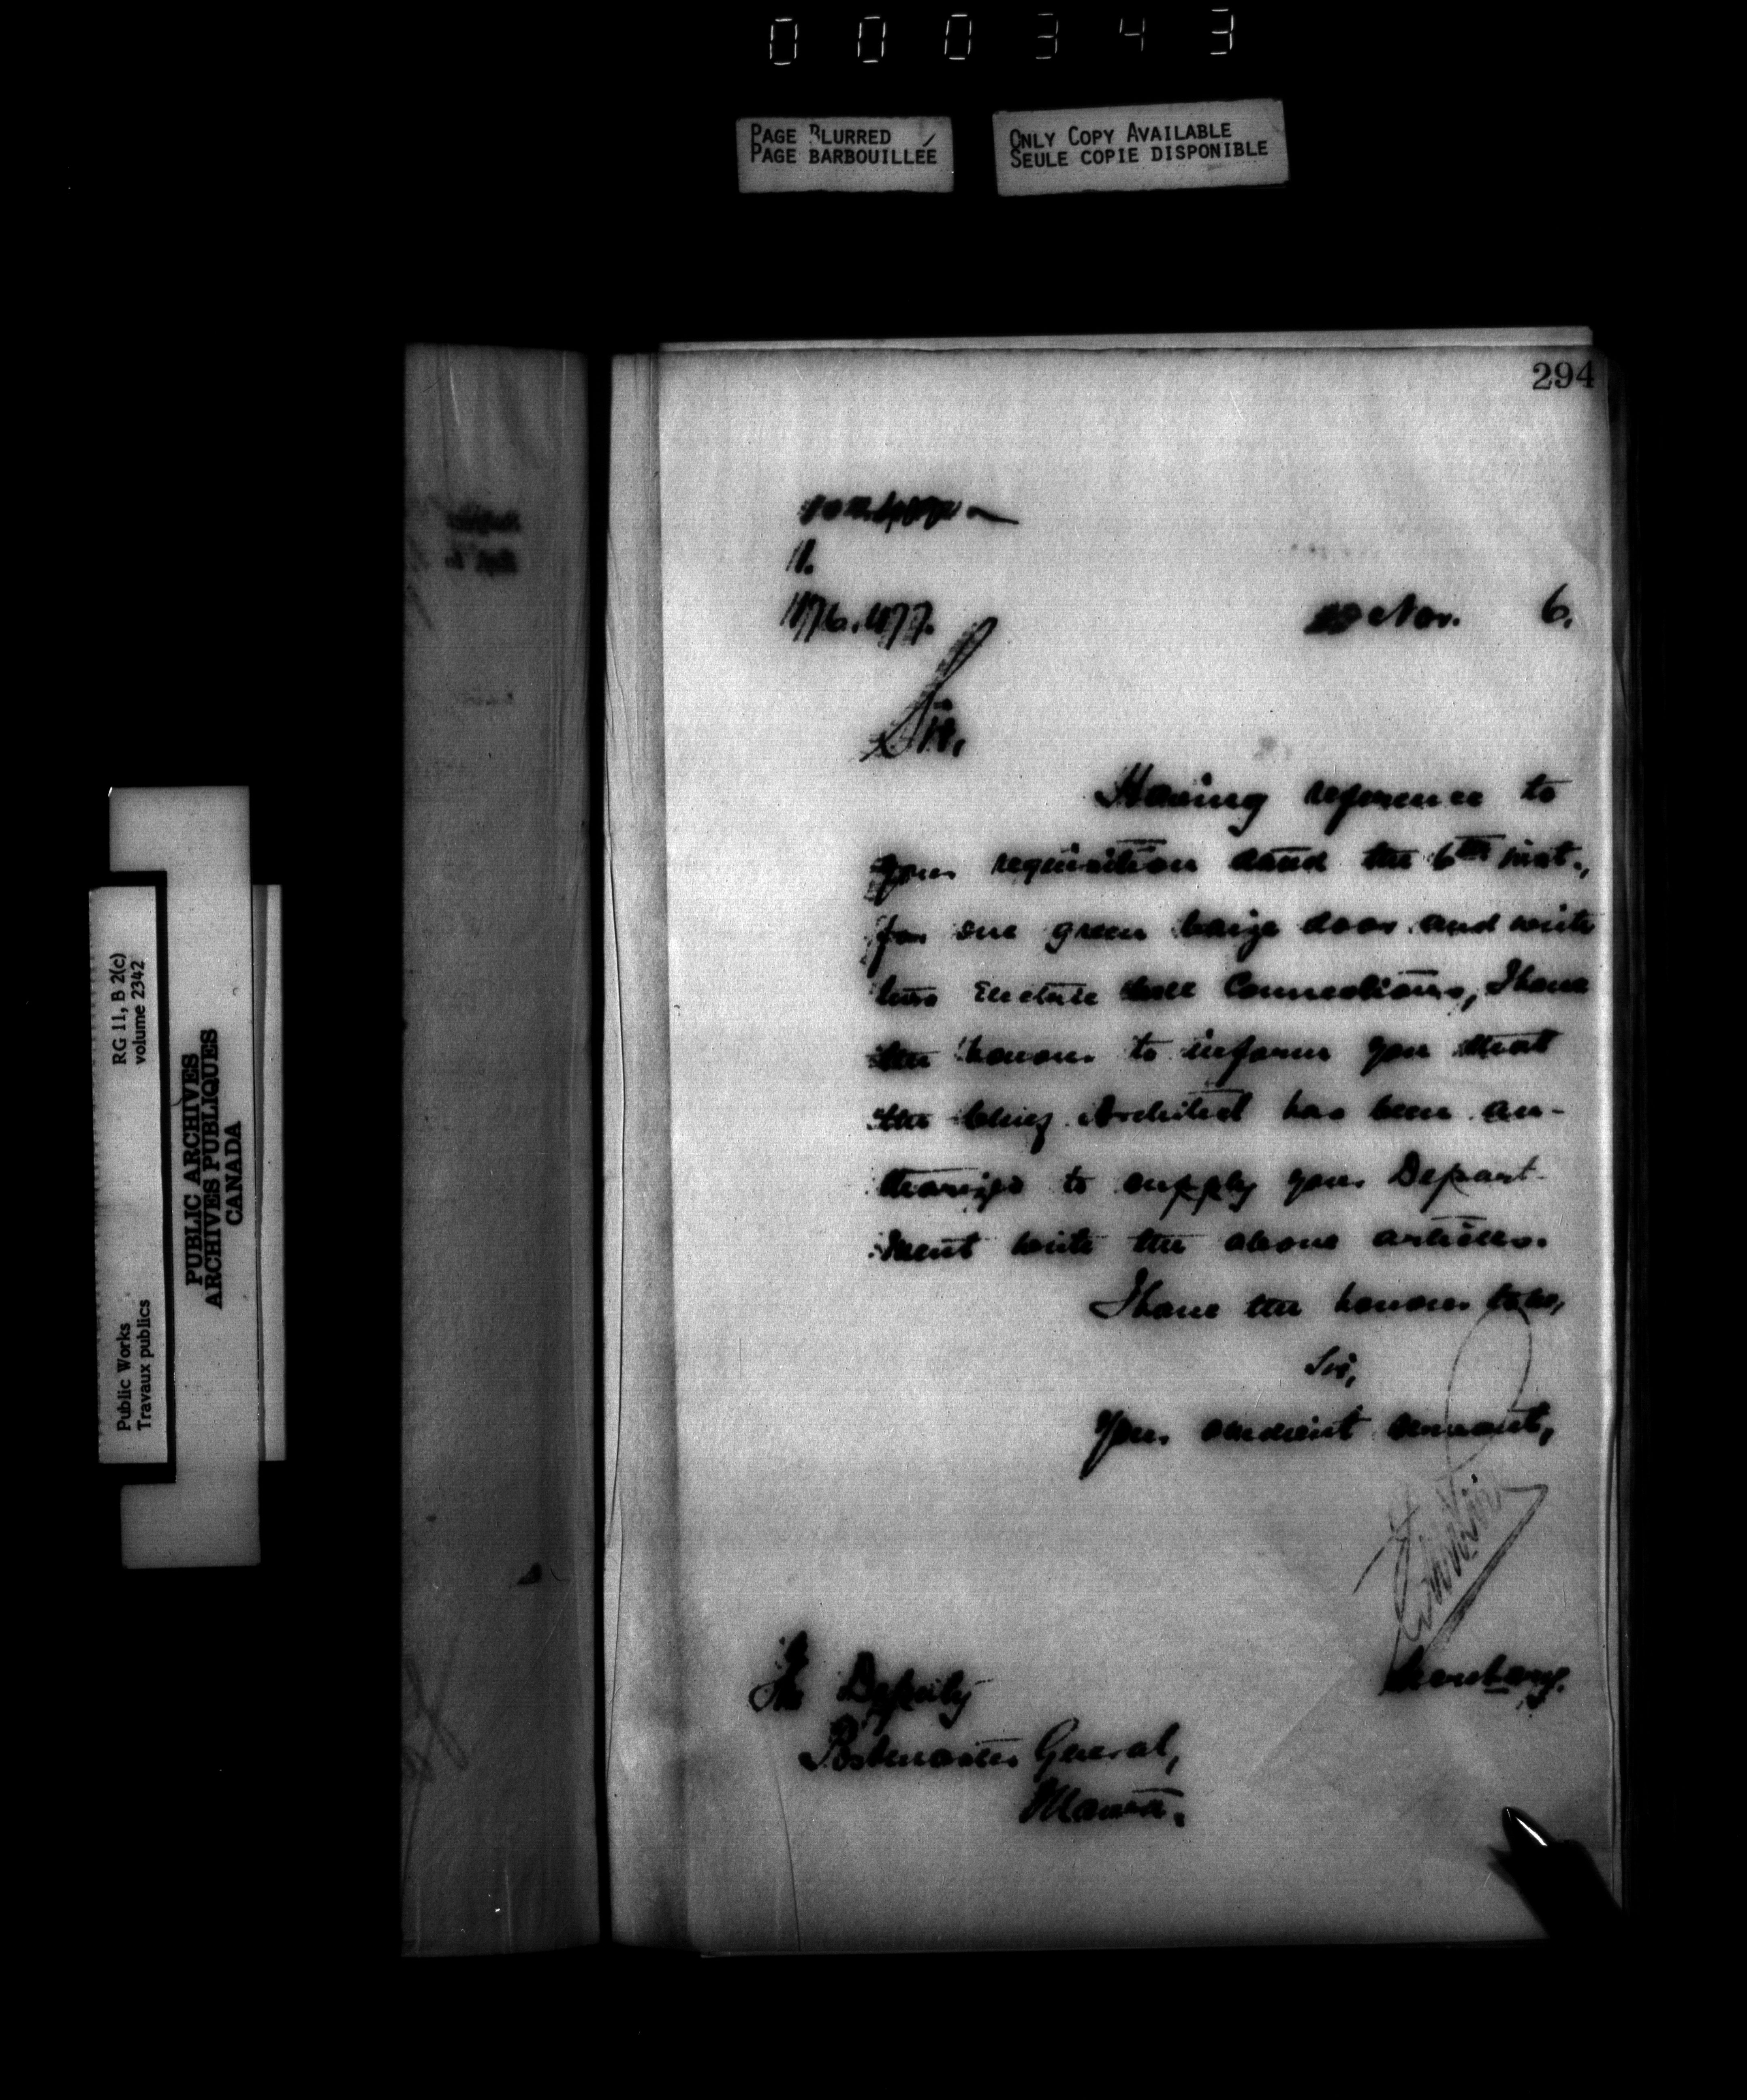 000343
PAGE BLURRED
PAGE BARBOUILLÉE
ONLY COPY AVAILABLE
SEULE COPIE DISPONIBLE
294
Nov. 6.
Sir,
Having reference to
your requisition dated the 6th inst.,
for one green baize door and with
two Electric bell Connections, I have
the honour to inform you that
the Chief Architect has been au-
thorized to supply your Depart-
ment with the above articles.
I have the honour to be,
Sir,
Your obedient servant,
Secretary.
The Deputy
Postmaster General,
Ottawa.
RG 11, B 2(c)
volume 2342
Public Works
Travaux publics
PUBLIC ARCHIVES
ARCHIVES PUBLIQUES
CANADA